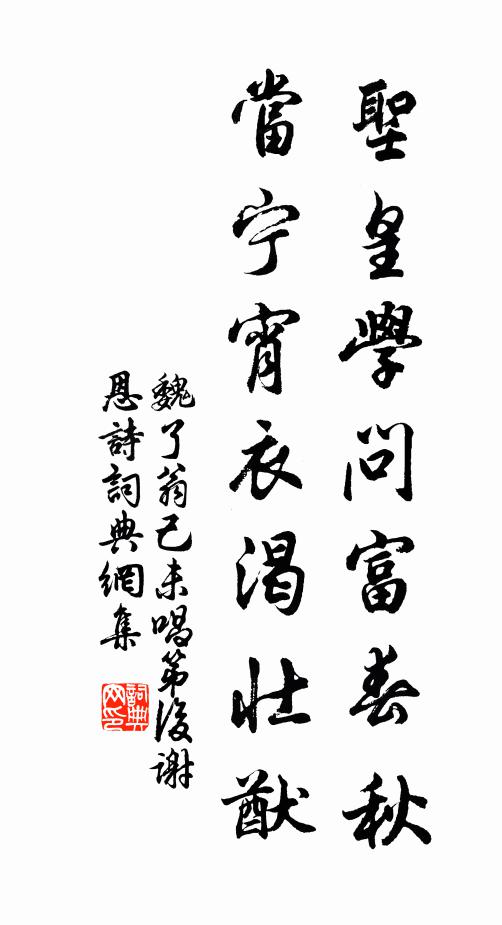 聖皇學問富春秋
當宁宵衣渴壯猷
魏了翁己未唱第後謝
恩詩詞典網集
詞典网印